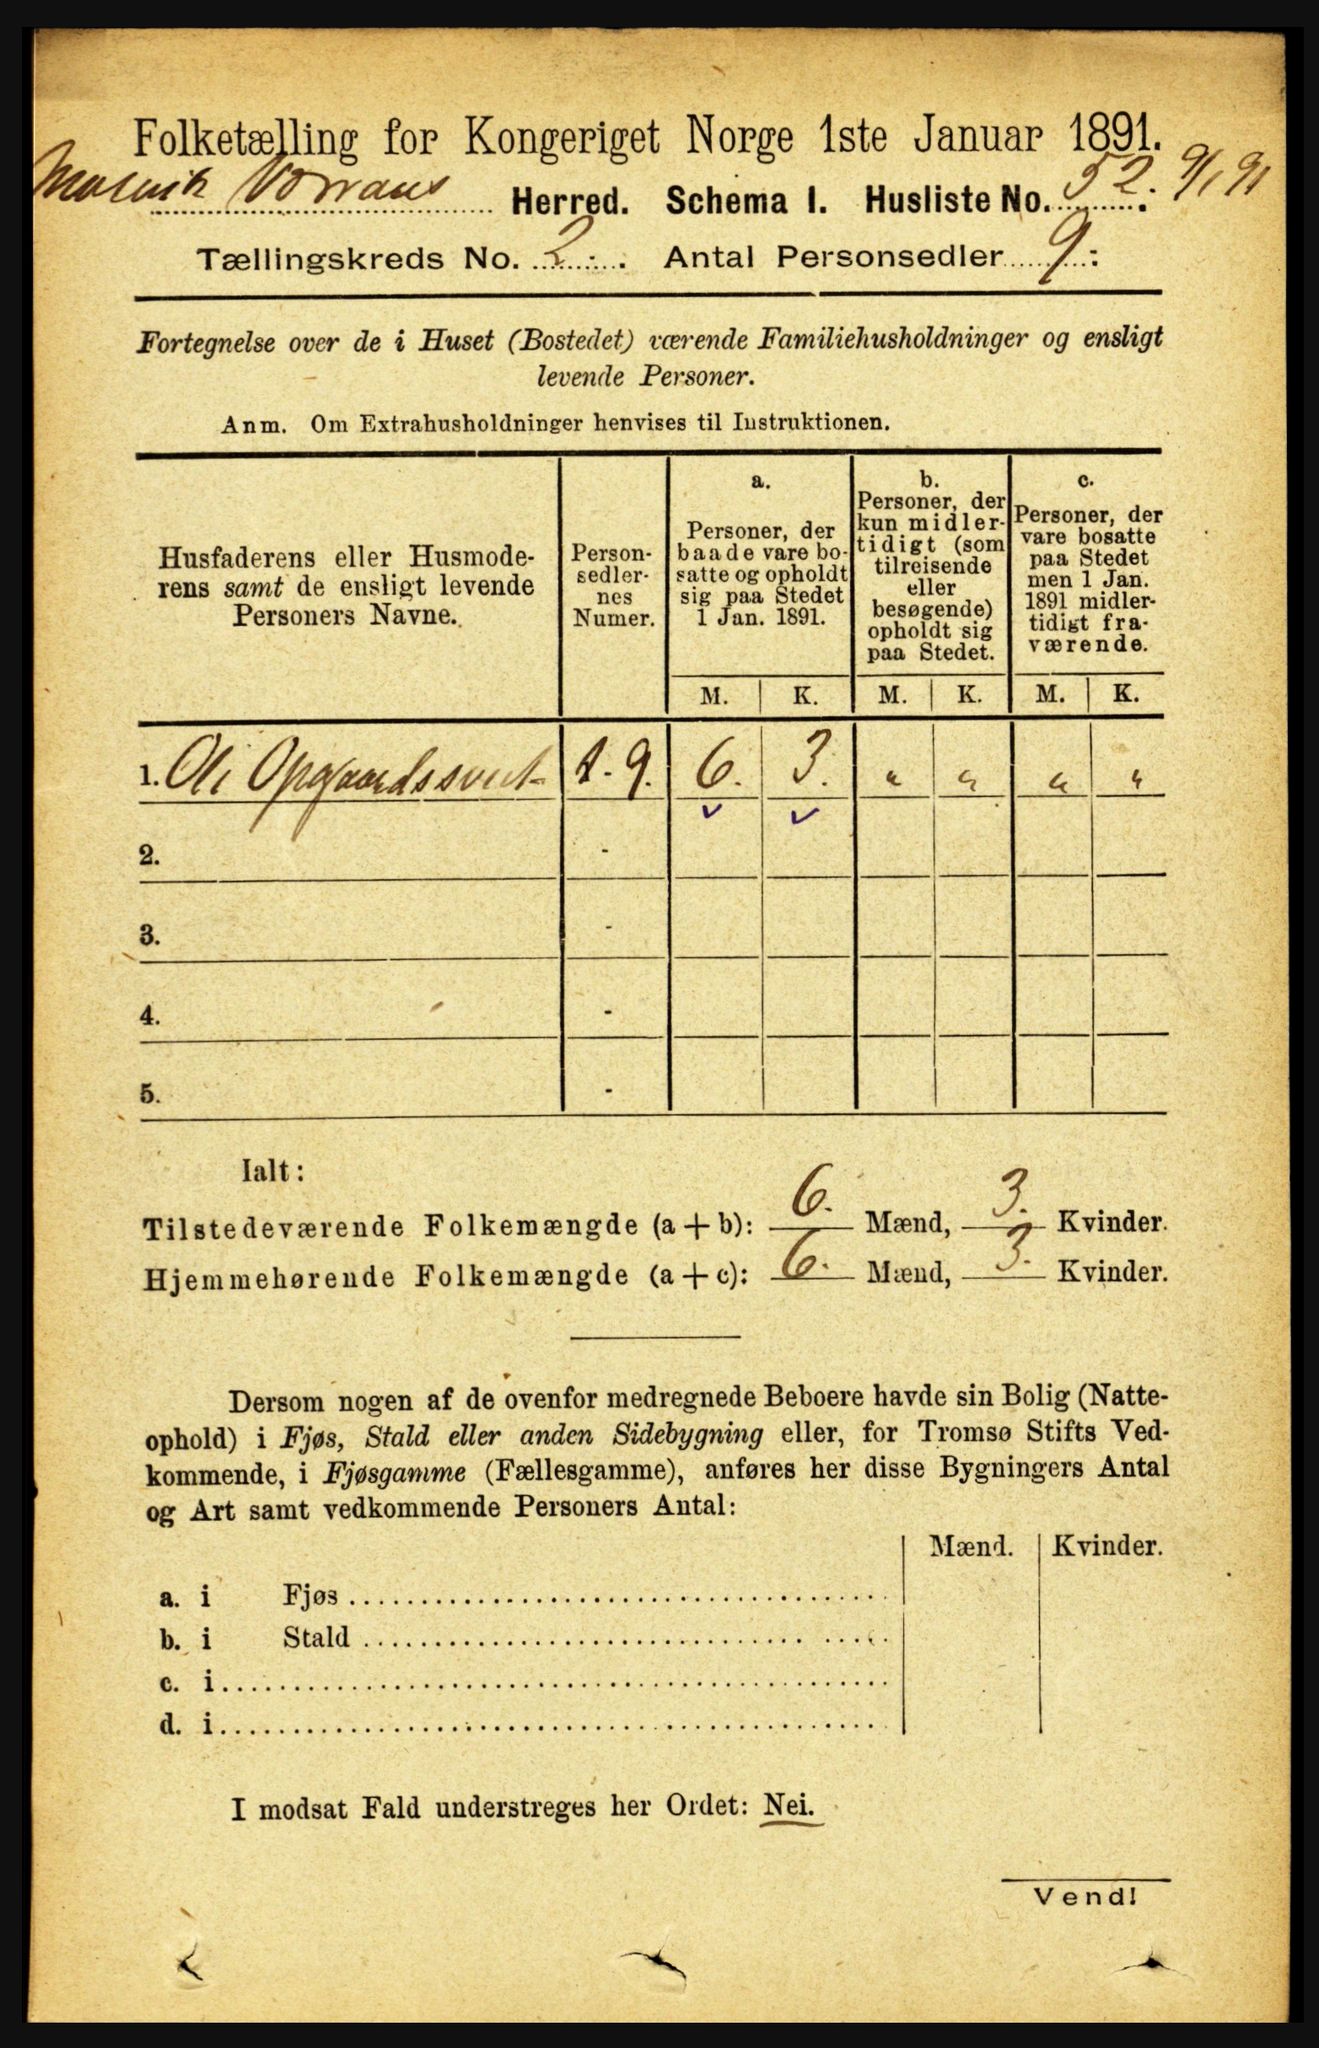 Folketælling for Kongeriget Norge 1ste Januar 1891.
Malvik Herred. Schema I. Husliste No. 52. 9/1 91
Tællingskreds No. 2. Antal Personsedler 9.
Fortegnelse over de i Huset (Bostedet) værende Familiehusholdninger og ensligt
levende Personer.
Anm. Om Extrahusholdninger henvises til Instruktionen.
Husfaderens eller Husmode-
rens samt de ensligt levende
Personers Navne.
Person-
sedler-
nes
Numer.
a.
Personer, der
baade vare bo-
satte og opholdt
sig paa Stedet
1 Jan. 1891.
b.
Personer, der
kun midler-
tidigt (som
tilreisende
eller
besøgende)
opholdt sig
paa Stedet.
c.
Personer, der
vare bosatte
paa Stedet
men 1 Jan.
1891 midler-
tidigt fra-
værende.
M. K. M. K. M. K.
1. Ole 1-9. 6. 3. " " " "
2. -
3. -
4. -
5. -
Ialt:
Tilstedeværende Folkemængde (a + b): 6. Mænd, 3. Kvinder.
Hjemmehørende Folkemængde (a + c): 6. Mænd, 3. Kvinder.
Dersom nogen af de ovenfor medregnede Beboere havde sin Bolig (Natte-
ophold) i Fjøs, Stald eller anden Sidebygning eller, for Tromsø Stifts Ved-
kommende, i Fjøsgamme (Fællesgamme), anføres her disse Bygningers Antal
og Art samt vedkommende Personers Antal:
Mænd. Kvinder.
a. i Fjøs
b. i Stald
c. i
d. i
I modsat Fald understreges her Ordet: Nei.
Vend!